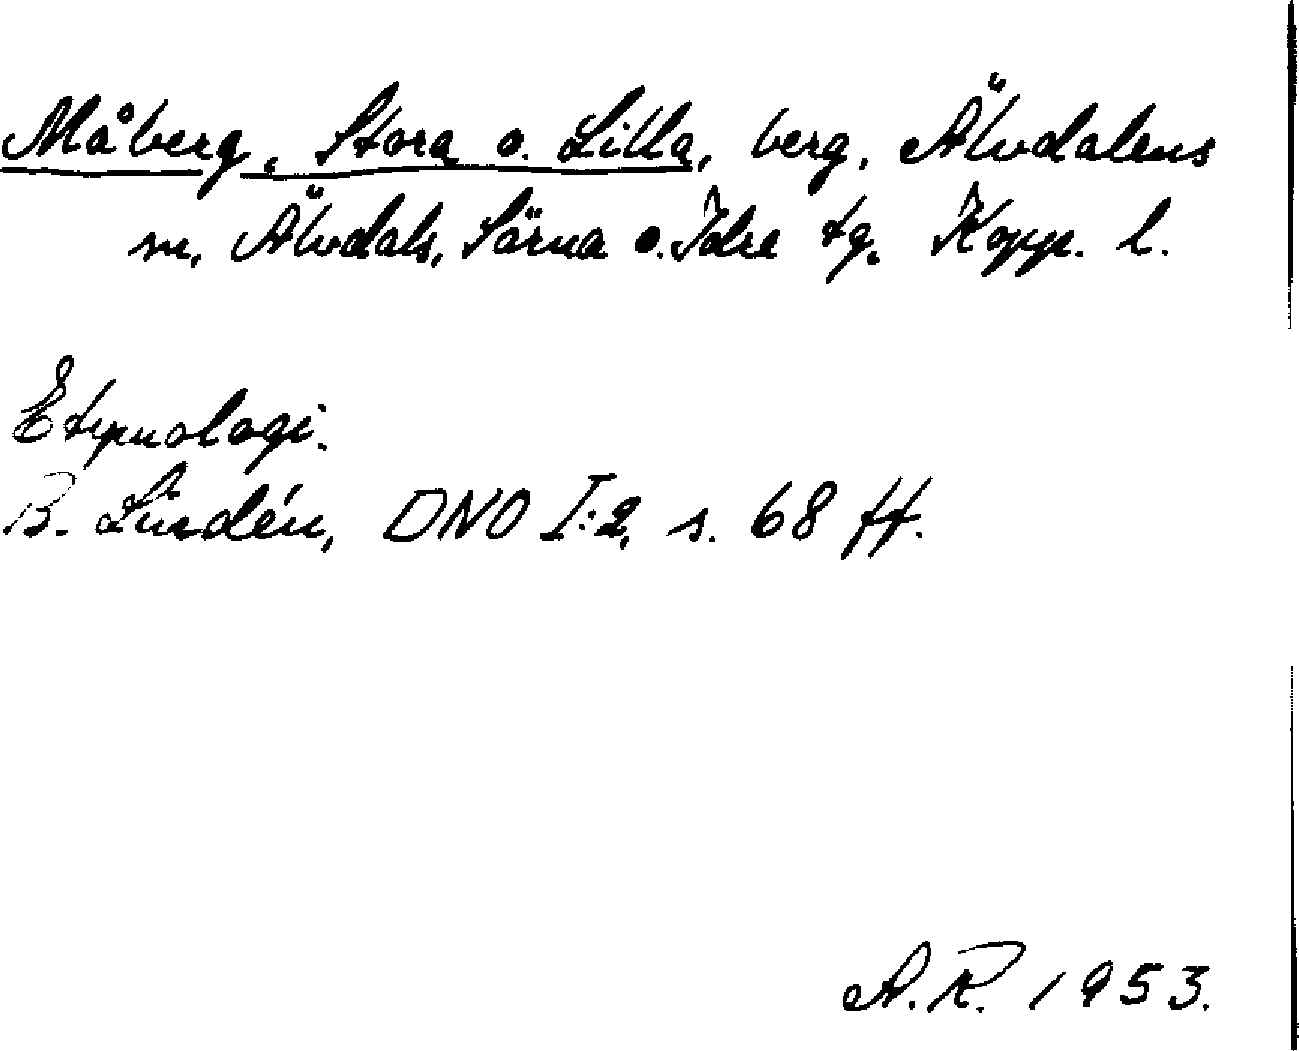 Måberg, Stora o. Lilla, berg, Älvdalens
sn, Älvdals, Särna o. Idre tg. Kopp. l.
Etymologi.
B. Lindén, DNO I:2, s. 68 ff.
A.R. 1953.